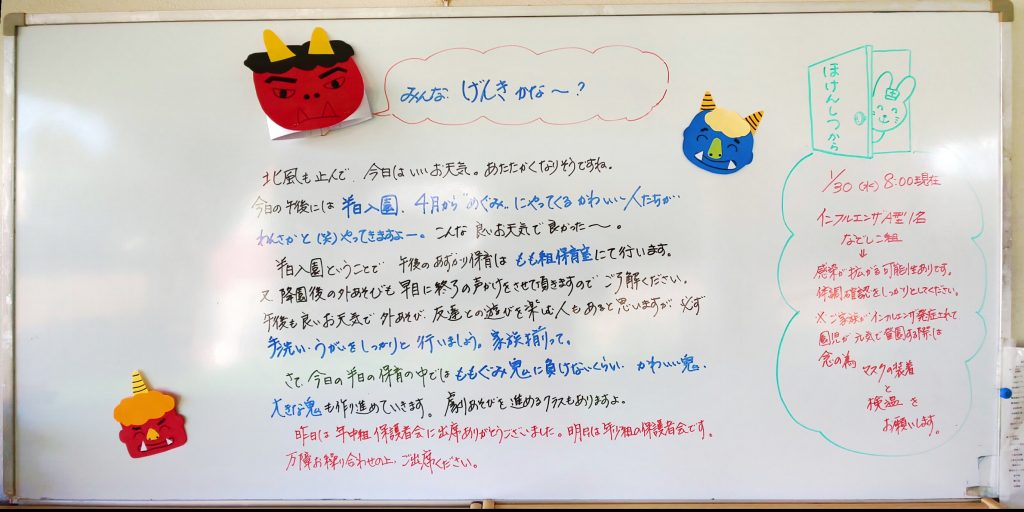 みんな げんき かな〜?
北風も止んで、今日はいいお天気。あたたかくなりそうですね。
今日の午後には 半日入園、4月から"めぐみ"にやってくるかわいい人たちが…
わんさかと(笑)やってきますよー。こんな良いお天気で良かった〜。
半日入園ということで 午後のあずかり保育は もも組保育室にて行います。
又、降園後の外あそびも 早目に終了の声かけをさせて頂きますので ご了解ください。
午後も良いお天気で 外あそび、友達との遊びを楽しむ人もあると思いますが、必ず
手洗い・うがいをしっかりと 行いましょう。家族揃って。
さて、今日の半日の保育の中では ももぐみ鬼に負けないくらい、かわいい鬼、
大きな鬼も作り進めていきます。劇あそびを進めるクラスもありますよ。
昨日は 年中組 保護者会に出席ありがとうございました。明日は年少組の保護者会です。
万障お繰り合わせの上、ご出席ください。
ほけんしつから
1/30(水) 8:00現在
インフルエンザA型 1名
なでしこ組
⇓
感染が拡がる可能性ありです。
体調確認をしっかりとしてください。
※ご家族がインフルエンザ発症されて
園児が元気で登園する際は
念の為
マスクの装着
と
検温を
お願いします。